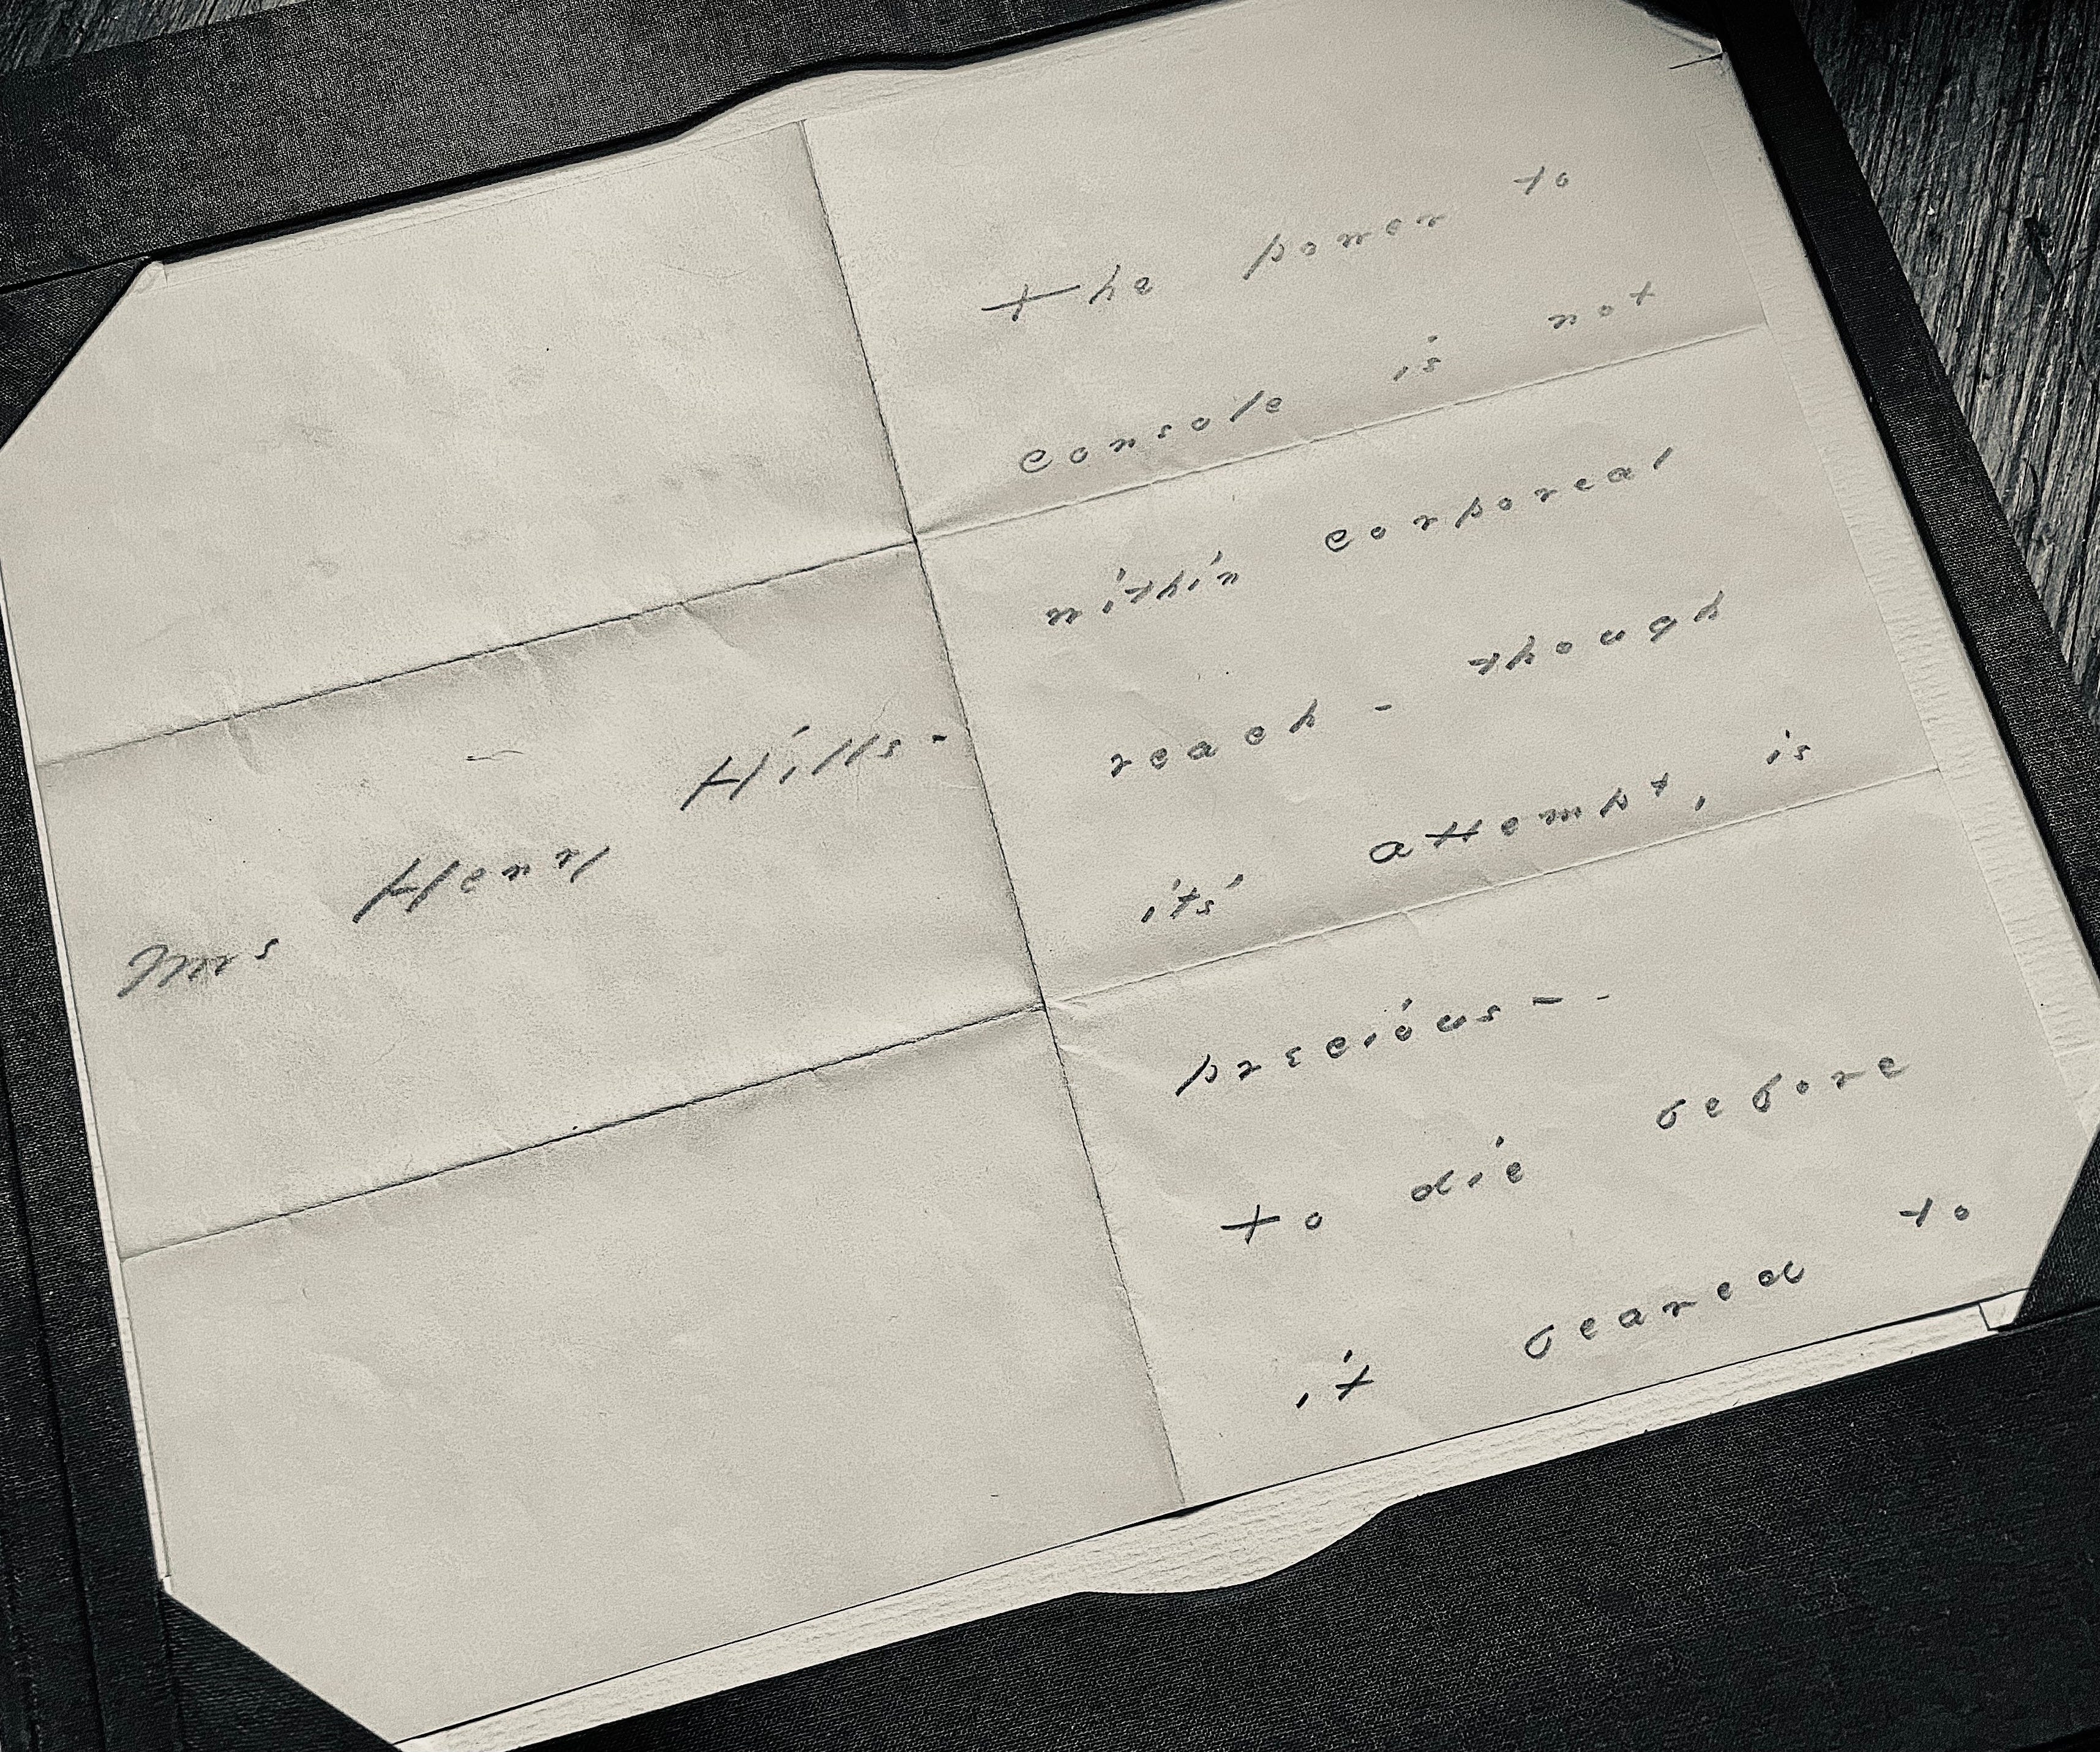 Mrs Henry Hills-
The power to
console is not
within corporeal
reach - though
its' attempt, is
precious - -
to die before
it feared to